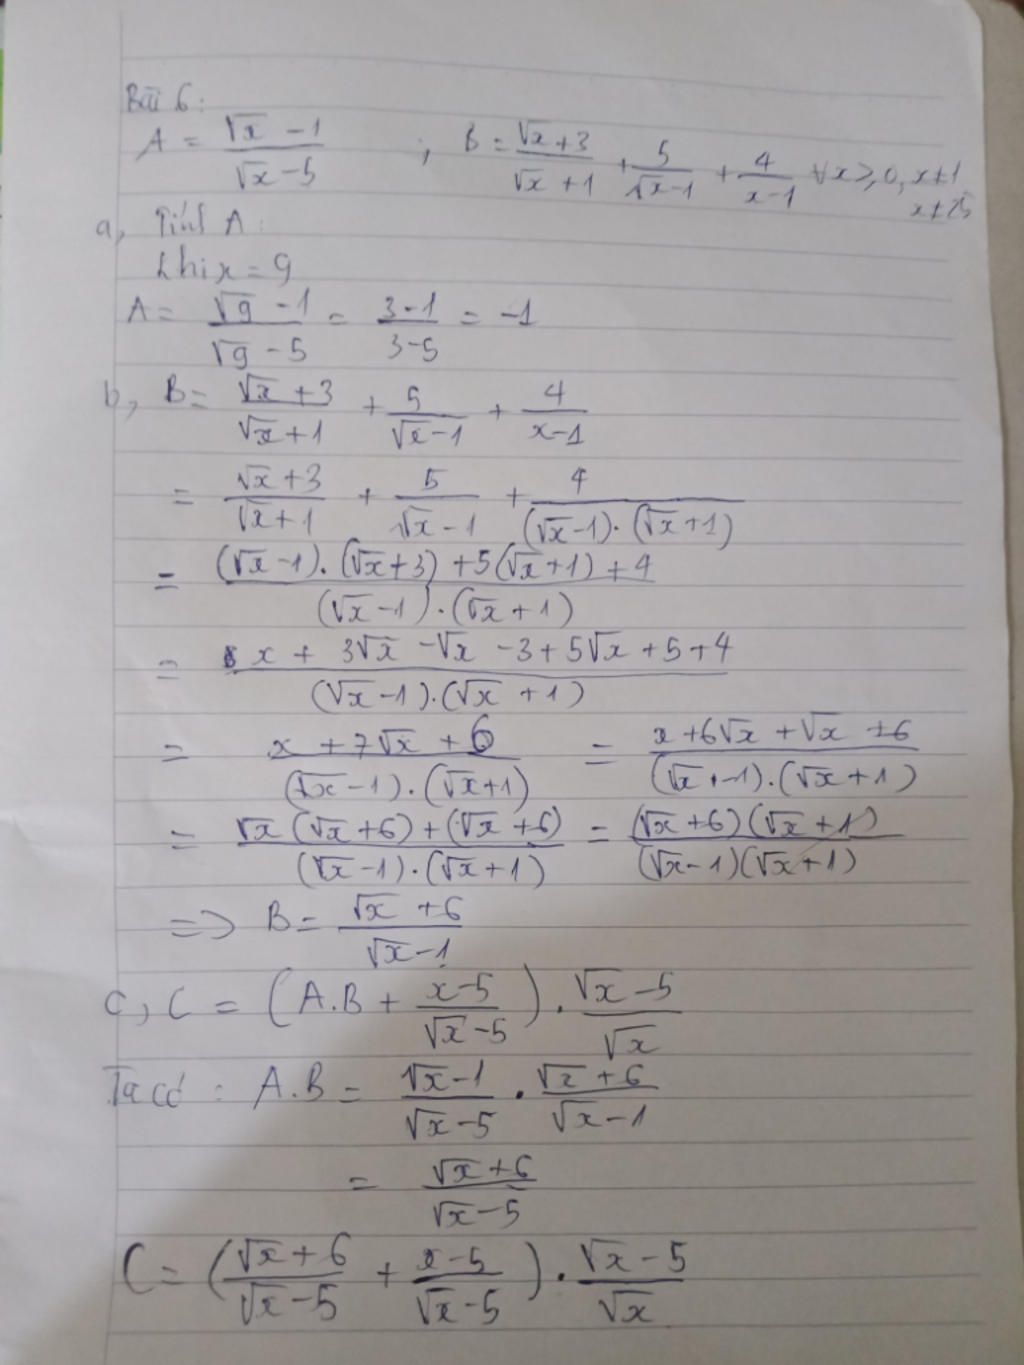 Bài 6:
A = (√x - 1)/(√x - 5) ; B = (√x + 3)/(√x + 1) + 5/(√x - 1) + 4/(x - 1) ∀x ≥ 0, x ≠ 1
x ≠ 25
a, Tính A:
khi x = 9
A = (√9 - 1)/(√9 - 5) = (3 - 1)/(3 - 5) = -1
b, B = (√x + 3)/(√x + 1) + 5/(√x - 1) + 4/(x - 1)
= (√x + 3)/(√x + 1) + 5/(√x - 1) + 4/((√x - 1).(√x + 1))
= ((√x - 1).(√x + 3) + 5(√x + 1) + 4)/((√x - 1).(√x + 1))
= (x + 3√x - √x - 3 + 5√x + 5 + 4)/((√x - 1).(√x + 1))
= (x + 7√x + 6)/((√x - 1).(√x + 1)) = (x + 6√x + √x + 6)/((√x - 1).(√x + 1))
= (√x(√x + 6) + (√x + 6))/((√x - 1).(√x + 1)) = ((√x + 6)(√x + 1))/((√x - 1)(√x + 1))
=> B = (√x + 6)/(√x - 1)
c, C = (A.B + (x - 5)/(√x - 5)) . (√x - 5)/√x
Ta có : A.B = (√x - 1)/(√x - 5) . (√x + 6)/(√x - 1)
= (√x + 6)/(√x - 5)
C = ((√x + 6)/(√x - 5) + (x - 5)/(√x - 5)) . (√x - 5)/√x